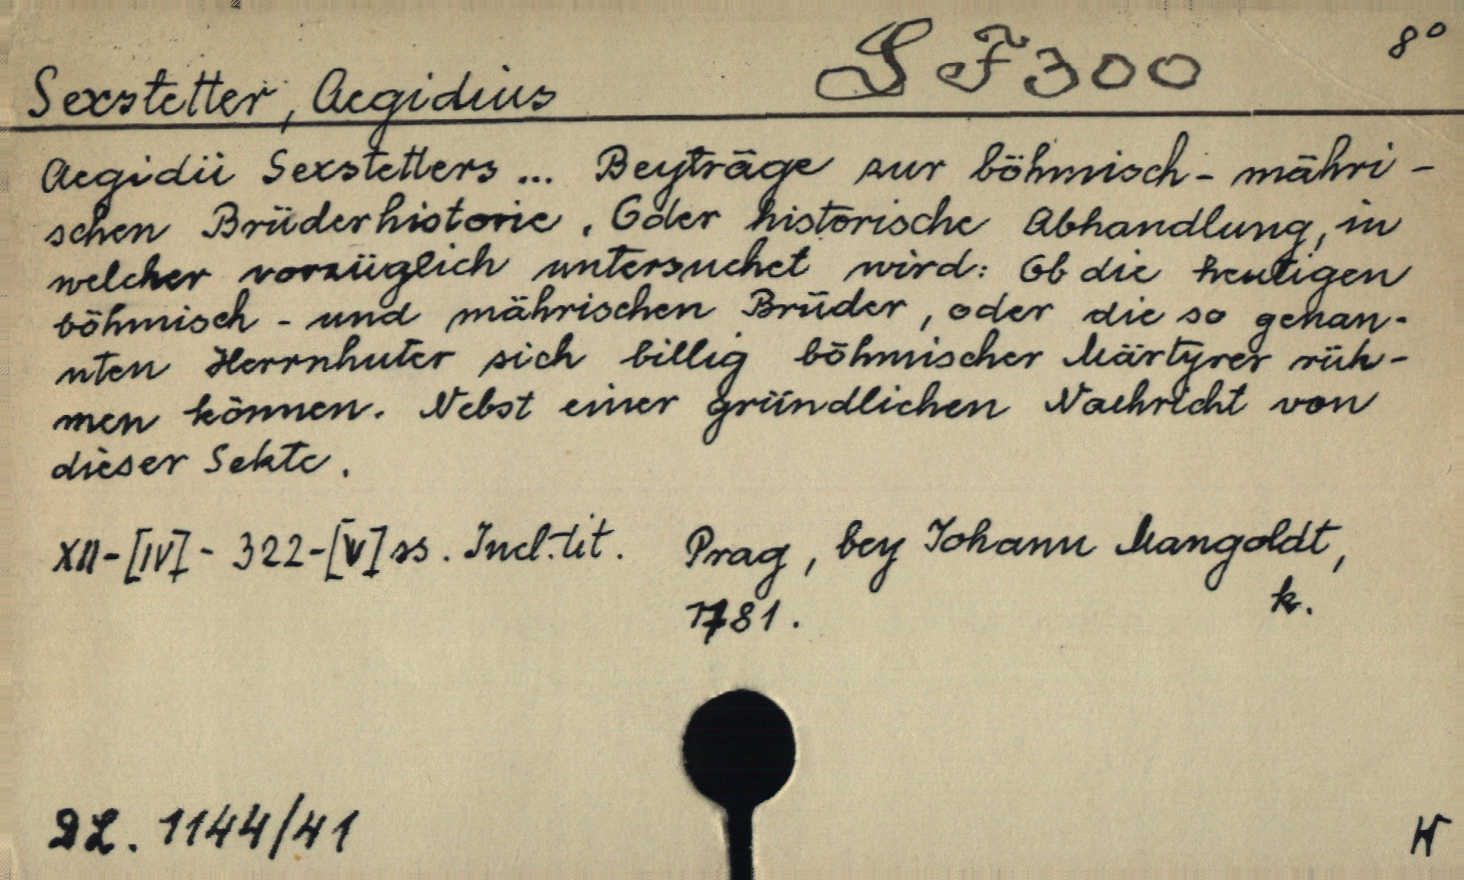 S F 300
8°
Sexstetter, Aegidius
Aegidii Sexstetters ... Beyträge zur böhmisch- mähri-
schen Brüderhistorie. Oder historische Abhandlung, in
welcher vorzüglich untersuchet wird: Ob die heutigen
böhmisch - und mährischen Brüder, oder die so genan-
nten Herrnhuter sich billig böhmischer Märtyrer rüh-
men können. Nebst einer gründlichen Nachricht von
dieser Sekte.
XII-[IV]- 322-[V] ss. Incl. tit. Prag, bey Johann Mangoldt,
1781. k.
DL. 1144/41